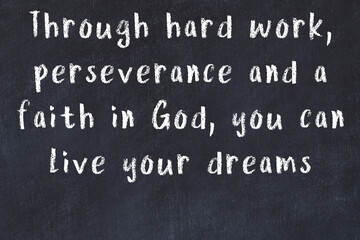 Through hard work,
perseverance and a
faith in God, you can
live your dreams